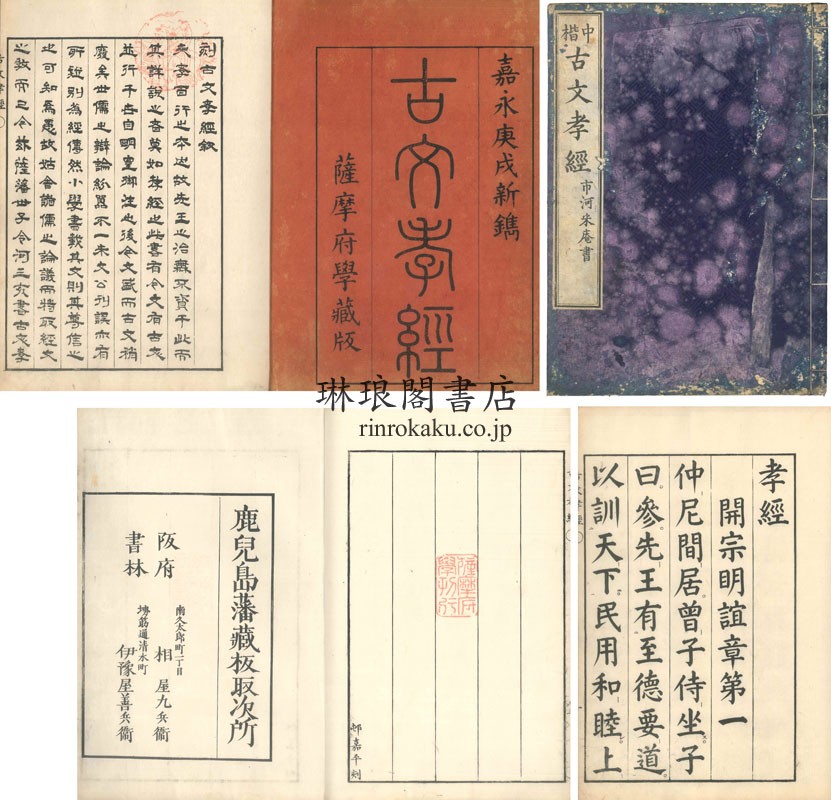 中楷
古文孝經
市河米庵書
嘉永庚戌新鐫
古文孝經
薩摩府學藏版
刻古文孝經敘
夫孝百行之本也故先王之治無不資乎此而
其詳說之者莫如孝經也此書有今文有古文
並行千古自明皇御注之後今文盛而古文稍
廢矣世儒之辯論紛焉不一朱文公刊誤亦有
所說則為經傳然小學書載其文則其尊信之
也可知焉愚故姑舍諸儒之論議而特取經文
之教而已今茲薩藩世子令河三亥書古文孝
琳琅閣書店
rinrokaku.co.jp
孝經
開宗明誼章第一
仲尼間居曾子侍坐子
曰參先王有至德要道
以訓天下民用和睦上
薩摩府
學刊行
邨嘉平刻
鹿兒島藩藏板取次所
阪府
書林
南久太郎町二丁目
相屋九兵衞
堺筋通清水町
伊豫屋善兵衞